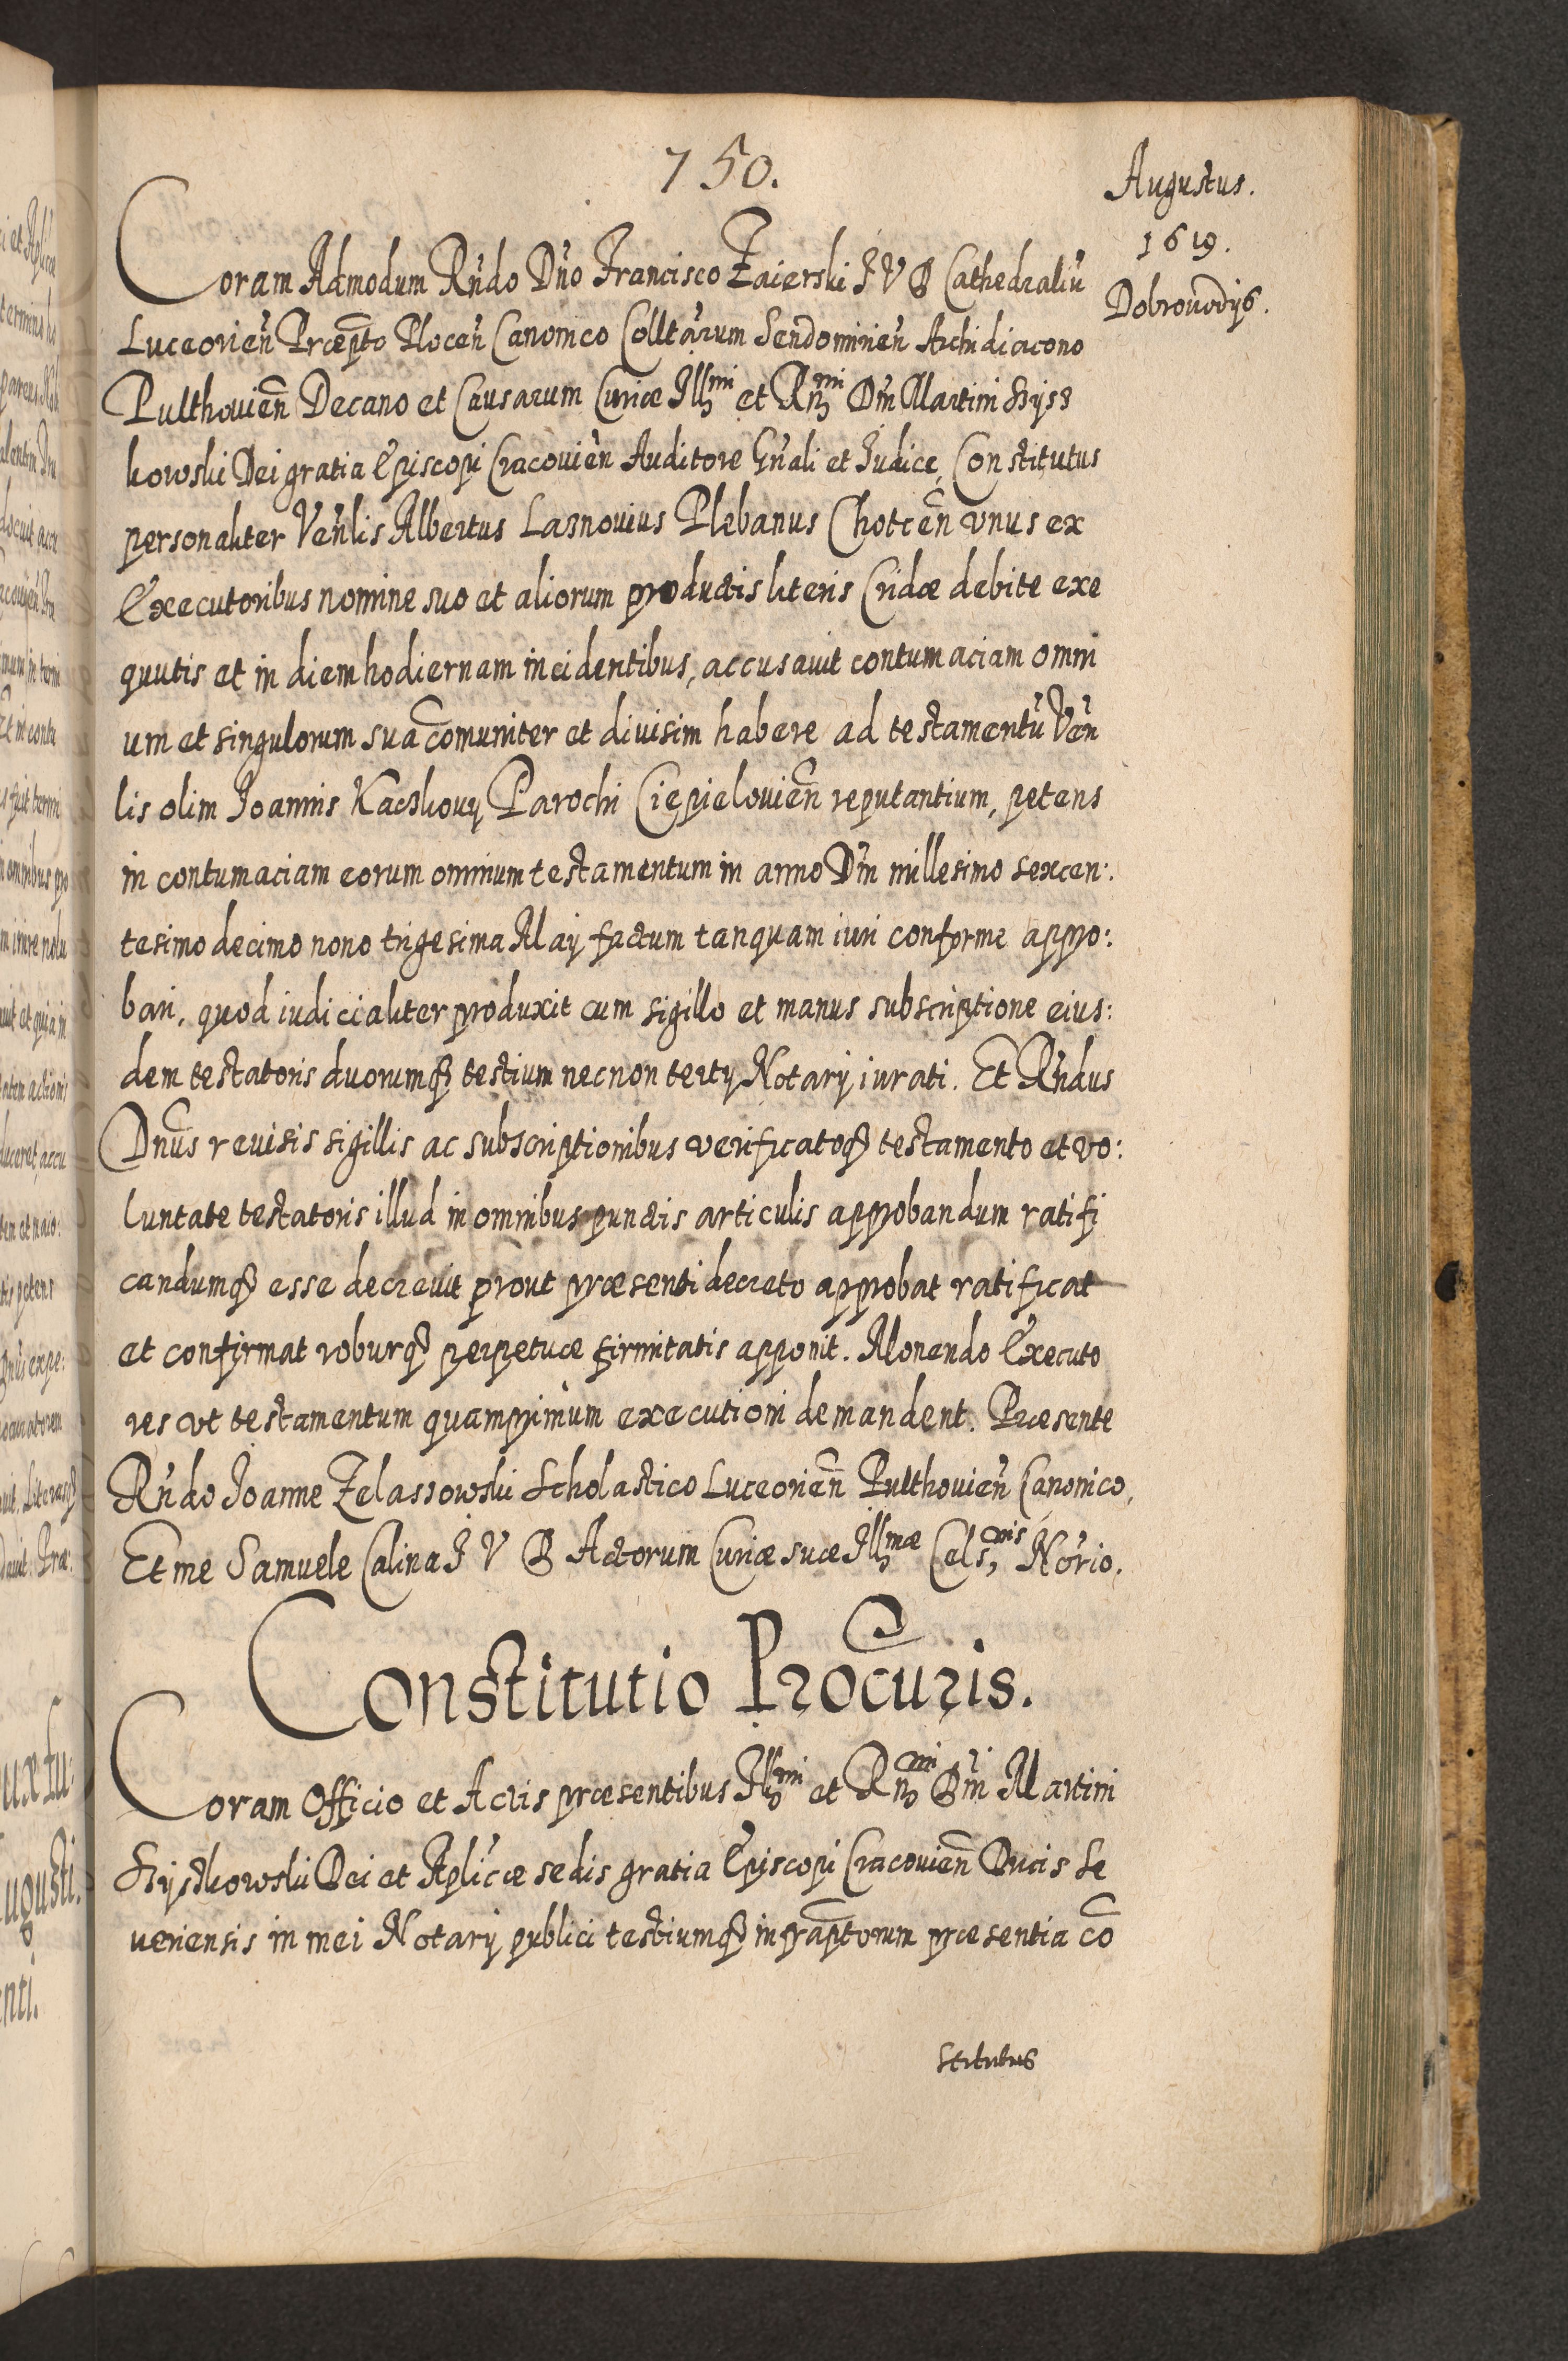 750.
Augustus.
1619.
Dobrouodijs.
Coram Admodum Rńdo Dńo Francisco Zaierski I V D Cathedraliū
Luceorień Præpto Plocen̄ Canonico Colltārum Sendomirień Archidiacono
Pulthouien̄ Decano et Causarum Curiæ Illmi et Rmi Dńi Martini Szysz
kowski Dei gratia Episcopi Cracouień Auditore Gńali et Iudice, Constitutus
personaliter Veńlis Albertus Lasnouius Plebanus Chotcen̄ vnus ex
Executoribus nomine suo et aliorum productis literis Cridæ debite exe
quutis et in diem hodiernam incidentibus, accusauit contumaciam omni
um et singulorum sua com̄uniter et diuisim habere ad testamentū Veń
lis olim Ioannis Kaczkouij Parochi Ciepielouien̄ reputantium, petens
in contumaciam eorum omnium testamentum in anno Dńi millesimo sexcen:
tesimo decimo nono trigesima Maij factum tanquam iuri conforme appro:
bari, quod iudicialiter produxit cum sigillo et manus subscriptione eius:
dem testatoris duorumq3 testium necnon tertij Notarij iurati. Et Rńdus
Dńus reuisis sigillis ac subscriptionibus verificatoq3 testamento et vo:
luntate testatoris illud in omnibus punctis articulis approbandum ratifi
candumq3 esse decreuit prout præsenti decreto approbat ratificat
et confirmat roburq3 perpetuæ firmitatis apponit. Monendo Executo
res vt testamentum quamprimum executioni demandent. Præsente
Rńdo Ioanne Zelassowski Scholastico Luceorien̄ Pulthouień Canonico,
Et me Samuele Calina I V D Actorum Curiæ suæ Illmæ Celsnis Nōrio.
Constitutio Procūris.
Coram Officio et Actis præsentibus Illmi et Rmi Dńi Martini
Szyszkowski Dei et Aplicæ sedis gratia Episcopi Cracouien̄ Ducis Se
ueriensis in mei Notarij publici testiumq3 infrāptorum præsentia cō
stitutus